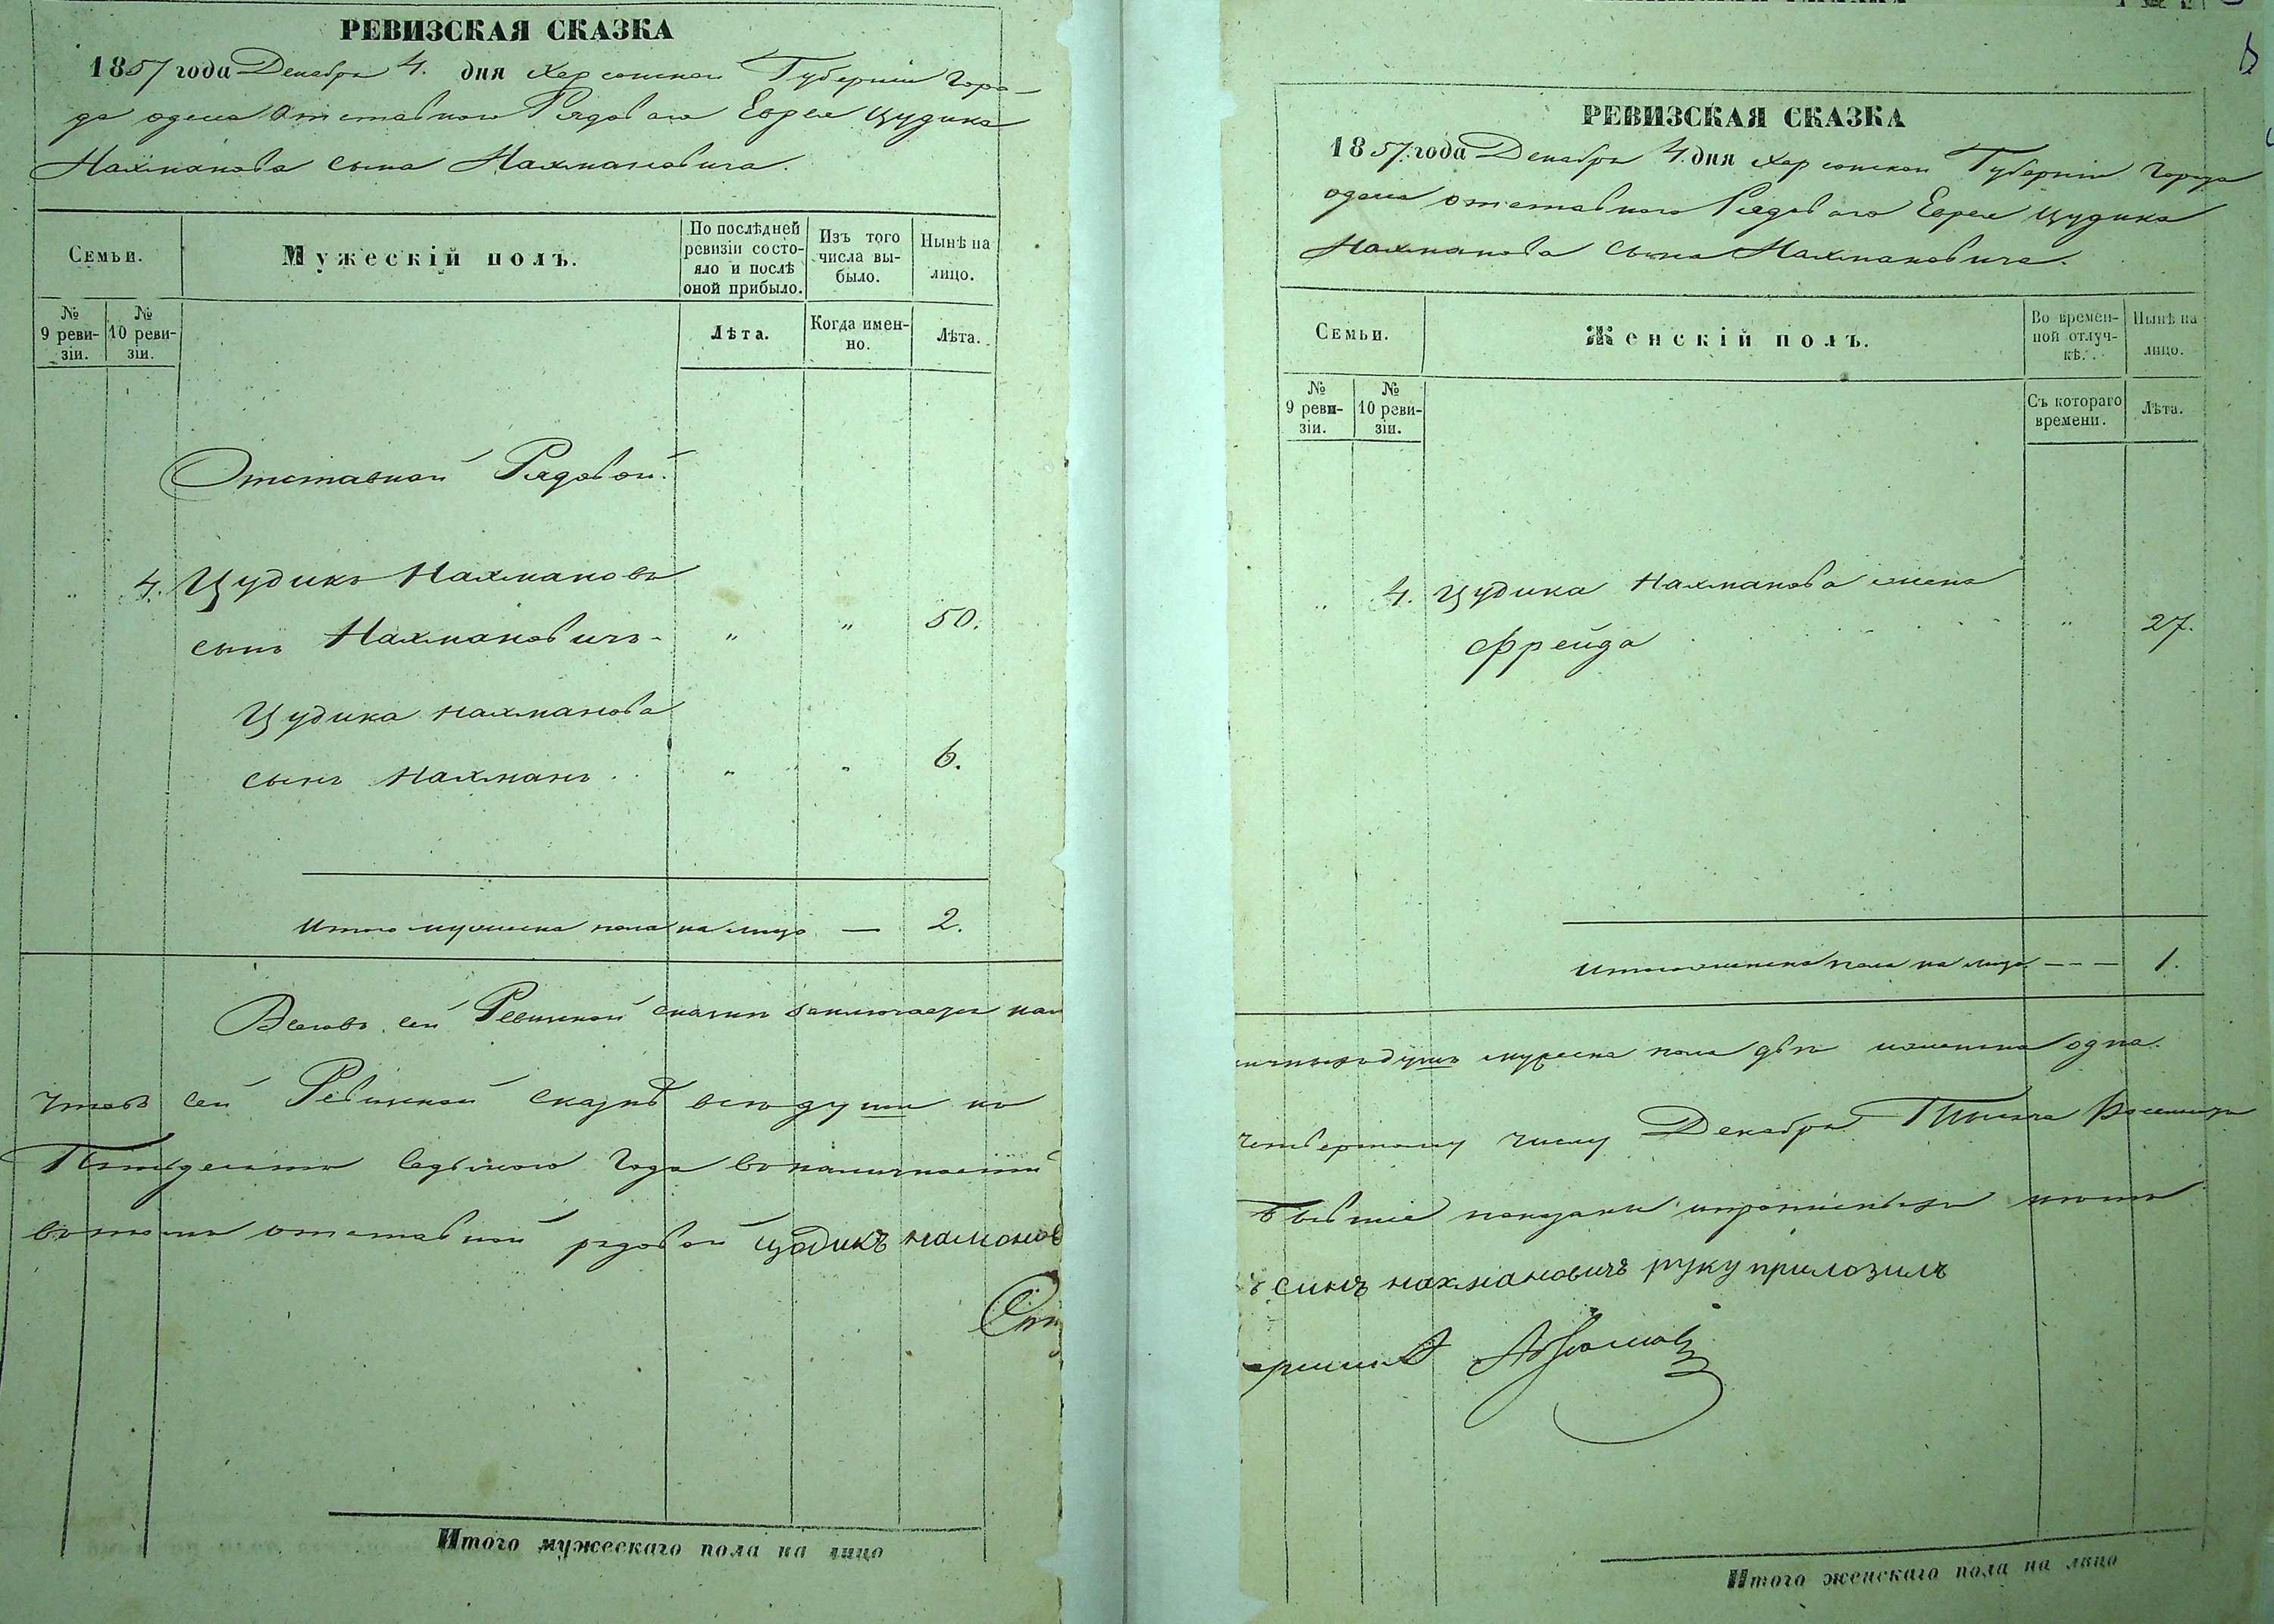 РЕВИЗСКАЯ СКАЗКА
1857 года Декабря 4. дня Херсонской Губерніи Горо-
да одеса отставного Рядоваго Еврея Цудика
Нахманова сына Нахмановича.
Семьи.
Мужескій полъ.
По послѣдней
ревизіи состо-
яло и послѣ
оной прибыло.
Изъ того
числа вы-
было.
Нынѣ на
лицо.
№
9 реви-
зіи.
№
10 реви-
зіи.
Лѣта.
Когда имен-
но.
Лѣта.
Отставной Рядовой.
" 4. Цудикъ Нахмановъ
сынъ Нахмановичъ - " " 50.
Цудика Нахманова
сынъ Нахманъ . . " " 6.
Итого мужеска пола на лицо — 2.
Всего въ сей Ревизской сказки заключается нал
Что въ сей Ревизской Сказкѣ всѣ души по
Пятьдесятъ седьмого Года въ наличности
въ томъ отставной рядовой цодикъ нахманов
Итого мужескаго пола на лицо
РЕВИЗСКАЯ СКАЗКА
1857 года Декабря 4. дня Херсонской Губерніи Города
одеса отставного Рядоваго Еврея Цудика
Нахманова сына Нахмановича.
Семьи.
Женскій полъ.
Во времен-
ной отлуч-
кѣ.
Нынѣ на
лицо.
№
9 реви-
зіи.
№
10 реви-
зіи.
Съ котораго
времени.
Лѣта.
" 4. Цудика Нахманова жена
Фрейда " 27.
Итого женска пола на лицо - - - 1.
личныхъ душъ мужеска пола двѣ и женска одна.
четвертому числу Декабря Тысяча
показаны и
ъ синъ нахмановичъ руку прилозилъ
Итого женскаго пола на лицо